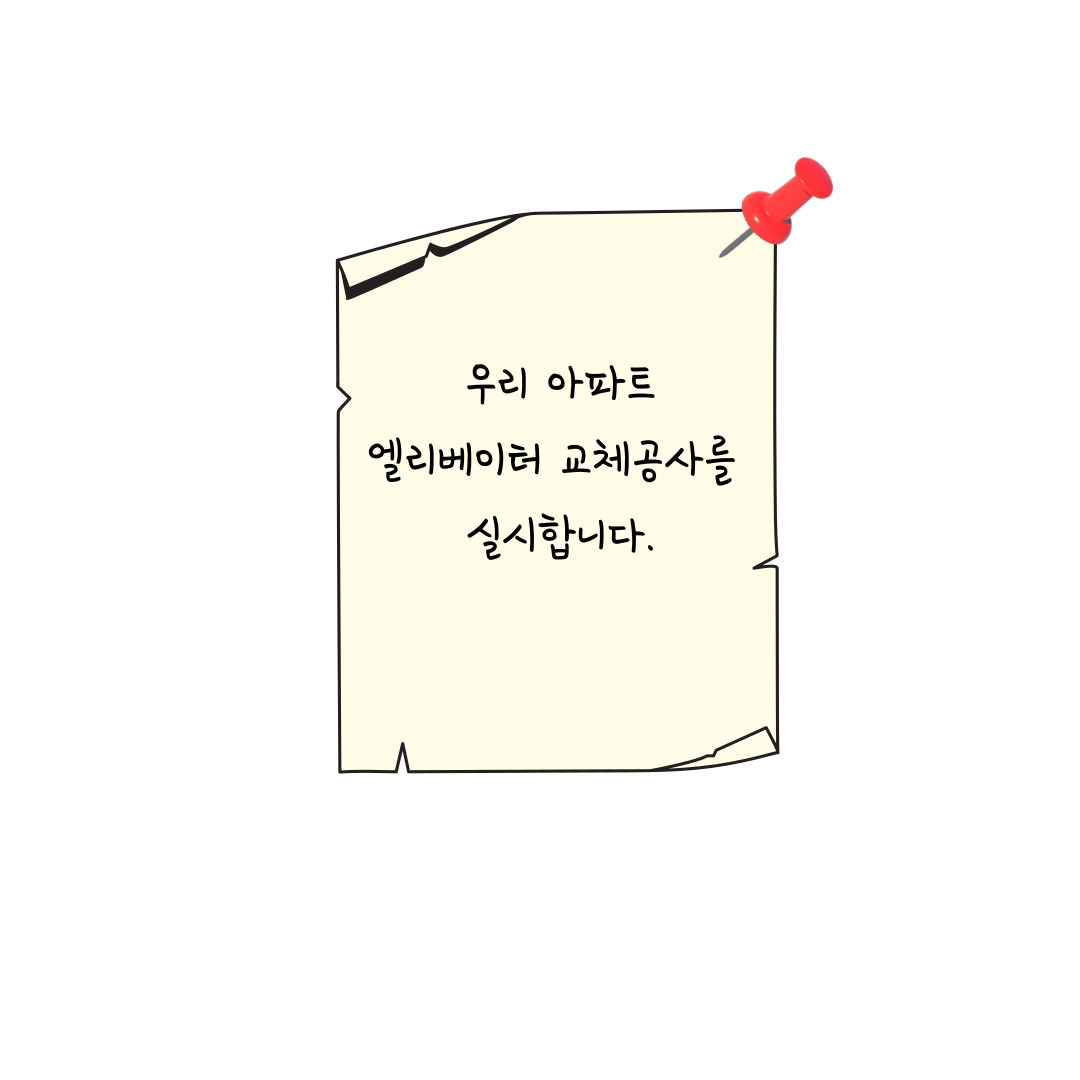 우리 아파트
엘리베이터 교체공사를
실시합니다.